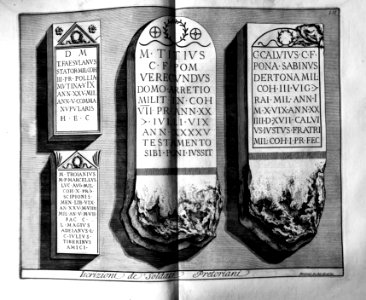 D M
T FAESVLANVS
STATOR MIL COH
III PR POLLIA
MVTINA VIX
ANN XXV MIL
ANN V COMMA
NVPVLARIS
H E C
M TROIASIVS
M F MARCELLVS
LVC AVG MIL
COH X PR
SCIPIONIS
MEN LIB VIX
MIL AN V
C IVLIVS
TIBERINVS
AMICI
M TITIVS
C F POM
VERECVNDVS
DOMO ARRETIO
MILIT IN COH
VII PR ANN XX
> IVLLI VIX
ANN XXXXV
TESTAMENTO
SIBI PONI IVSSIT
C CALVIVS C F
POM SABINVS
DERTONA MIL
COH III VIG >
RAI MIL ANN I
M X VIX ANN XX
IIII D XVII CALVI
VS IVSTVS FRATRI
MIL COH I PR FEC
Iscrizioni de Soldati Pretoriani